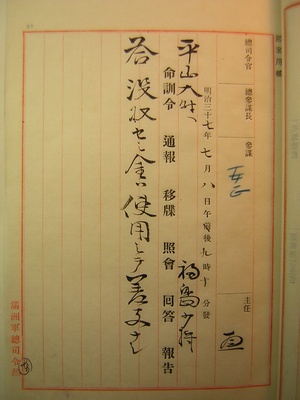 總司令官 總參謀長 參謀 主任
明治三十七年七月八日午前後九時 分發
福島少將
命訓令 通報 移牒 照會 回答 報告
答 没収セシ 使用シテ差支ナシ
滿洲軍總司令部